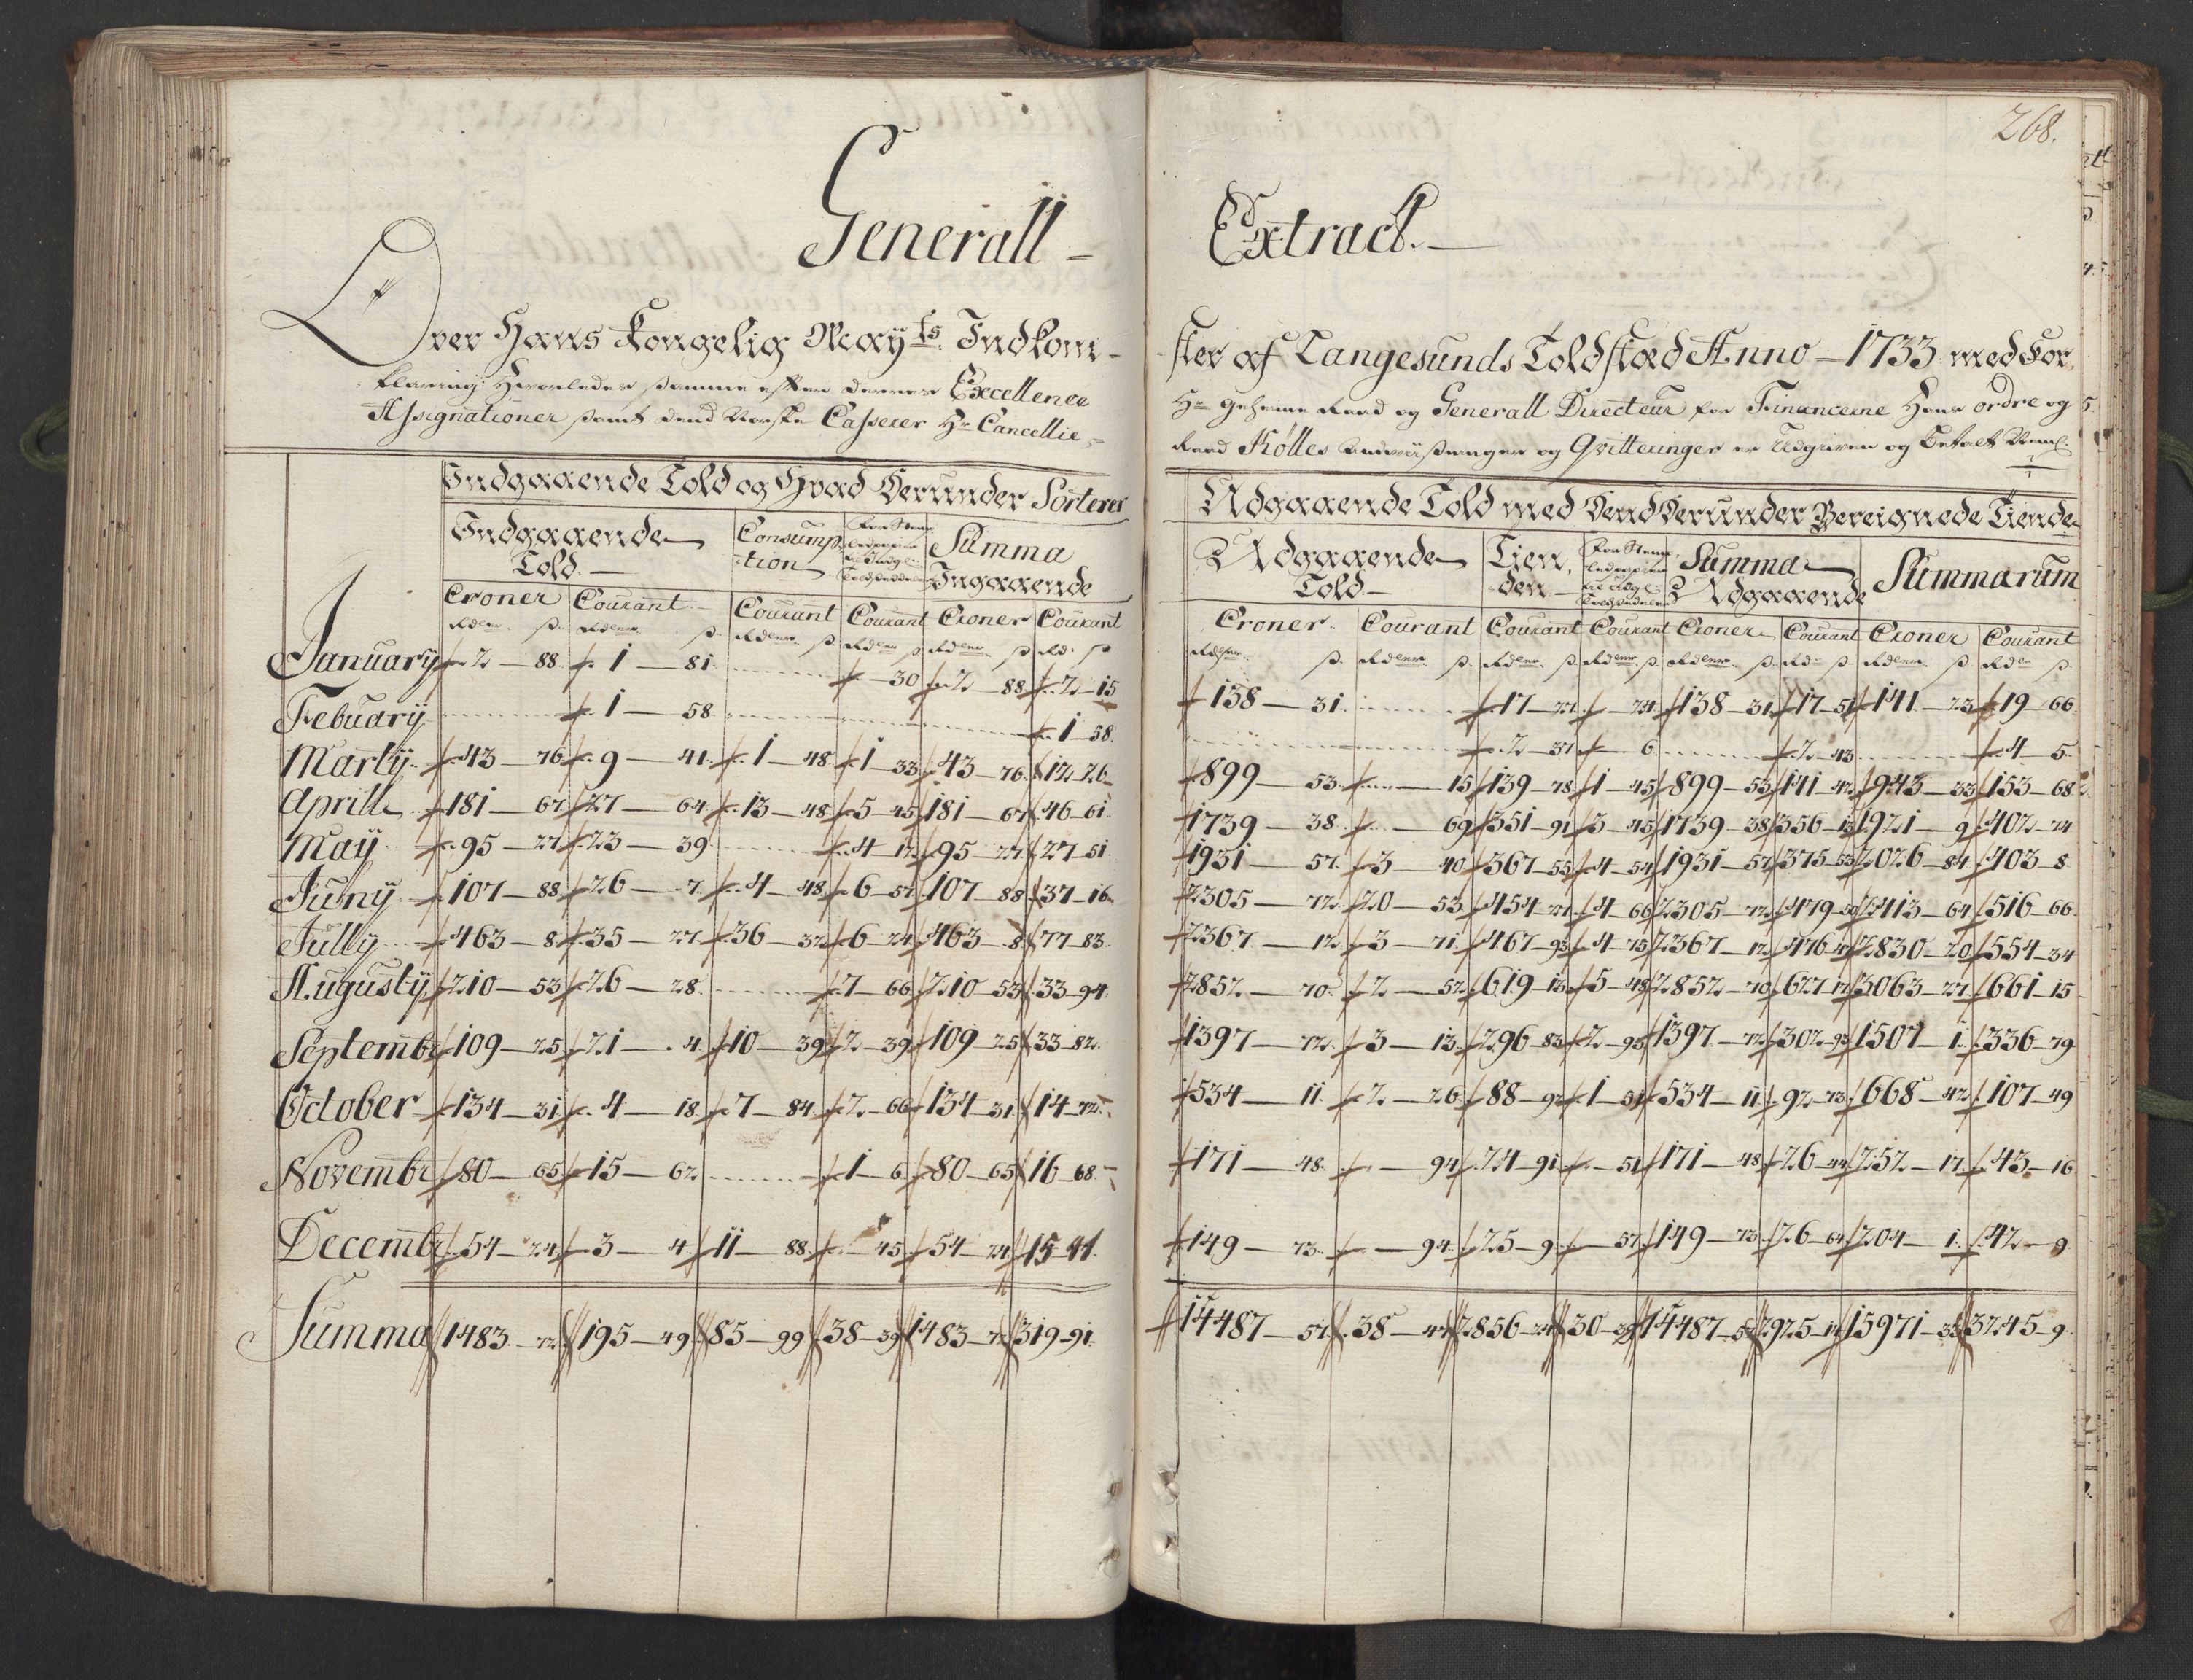 268.
Generall -
Extract. —
Over Hans Kongelig May:ts Indkom-
klaring Hvorledes samme efter deres Excellence
Assignationer samt dend Norske Casserer Hr Cancellie-
ster af Langesunds Toldsted Anno - 1733 med For
Hr Geheime Raad og Generall Directeur for Financerne Hans ordre og
Raad Kølles og Qvitteringer er Udgiven og Betalt Neml:
Indgaaende Told og Hvad Derunder Sorterer
Indgaaende Told. — Consumption Indg: Toldsedeler Summa Ingaaende
Croner Courant Courant Courant Croner Courant
January 2 — 88 1 — 81 — 30 2 — 88 2 — 15
Febuarij 1 — 58 1 — 58
Martij 43 — 76 9 — 41 1 — 48 1 — 33 43 — 76 12 26
Aprill 181 — 67 27 — 64 13 — 48 5 — 45 181 — 67 46 — 61
Maij 95 — 27 23 — 39 4 — 12 95 — 27 27 — 51
Junij 107 — 88 26 — 7 4 — 48 6 — 57 107 — 88 37 — 16
Jully 463 — 8 35 — 27 36 — 32 6 — 24 463 — 8 77 — 83
Augustij 210 — 53 26 — 28 7 — 66 210 — 53 33 — 94
Septembr 109 — 25 21 — 4 10 — 39 2 — 39 109 — 25 33 — 82
October 134 — 31 4 — 18 7 — 84 2 — 66 134 — 31 14 — 72
Novembr 80 — 65 15 — 62 1 — 6 80 — 65 16 — 68
Decembr 54 — 24 3 — 4 11 — 88 — 45 54 — 24 15 — 41
Summa 1483 — 72 195 — 49 85 — 99 38 — 39 1483 — 72 319 — 91
Udgaaende Told med Dend Derunder Bereignede Tiende
Udgaaende Told — Tienden — Udg: Toldsedeler Summa Udgaaende Summarum
Croner Courant Courant Courant Croner Courant Croner Courant
138 — 31 17 — 27 — 24 138 — 31 17 — 51 141 — 23 19 — 66
2 — 37 — 6 2 — 43 4 — 5
899 — 53 — 15 139 — 78 1 — 45 899 — 53 141 — 42 943 — 33 153 — 68
1739 — 38 — 69 351 — 91 3 — 45 1739 — 38 356 — 13 1921 — 9 402 — 74
1931 — 57 3 — 40 367 — 55 4 — 54 1931 — 57 375 — 53 2026 — 84 403 — 8
2305 — 72 20 — 53 454 — 27 4 — 66 2305 — 72 479 — 50 2413 — 64 516 — 66
2367 — 12 3 — 71 467 — 93 4 — 75 2367 — 12 476 — 47 2830 — 20 554 — 34
2852 — 70 2 — 52 619 — 13 5 — 48 2852 — 70 627 — 17 3063 — 27 661 — 15
1397 — 72 3 — 13 296 — 83 2 — 93 1397 — 72 302 — 93 1507 — 1 336 — 79
534 — 11 2 — 26 88 — 92 1 — 51 534 — 11 92 — 73 668 — 42 107 — 49
171 — 48 — 94 24 — 91 — 51 171 — 48 26 — 44 252 — 17 43 — 16
149 — 73 — 94 25 — 9 — 57 149 — 73 26 — 64 204 — 1 42 — 9
14487 — 57 38 — 47 2856 — 24 30 — 39 14487 — 57 2925 — 14 15971 — 33 3245 — 9